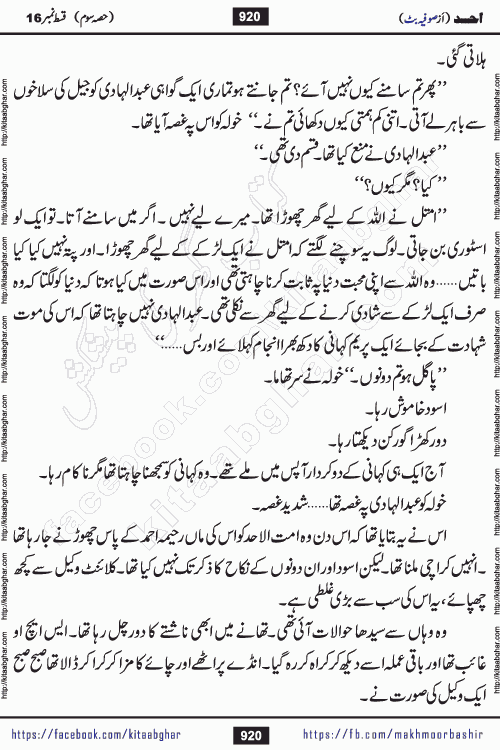 اَحد (از صوفیہ بٹ)
920
(حصہ سوم) قسط نمبر 16
ہلاتی گئی۔
”پھر تم سامنے کیوں نہیں آئے؟ تم جانتے ہو تمہاری ایک گواہی عبدالہادی کو جیل کی سلاخوں
سے باہر لے آتی۔ اتنی کم ہمتی کیوں دکھائی تم نے۔“ خولہ کو اس پہ غصہ آیا تھا۔
”عبدالہادی نے منع کیا تھا۔ قسم دی تھی۔“
”کیا؟ مگر کیوں؟“
”امتل نے اللہ کے لیے گھر چھوڑا تھا۔ میرے لیے نہیں۔ اگر میں سامنے آتا۔ تو ایک لو
اسٹوری بن جاتی۔ لوگ یہ سوچنے لگتے کہ امتل نے ایک لڑکے کے لیے گھر چھوڑا۔ اور پتہ نہیں کیا کیا
باتیں......وہ اللہ سے اپنی محبت دنیا پہ ثابت کرنا چاہتی تھی اور اس صورت میں کیا ہوتا کہ دنیا کو لگتا کہ وہ
صرف ایک لڑکے سے شادی کرنے کے لیے گھر سے نکلی تھی۔ عبدالہادی نہیں چاہتا تھا کہ اس کی موت
شہادت کے بجائے ایک پریم کہانی کا دکھ بھرا انجام کہلائے اور بس......“
”پاگل ہو تم دونوں۔“ خولہ نے سر تھاما۔
اسود خاموش رہا۔
دور کھڑا گورکن دیکھتا رہا۔
آج ایک ہی کہانی کے دو کردار آپس میں ملے تھے۔ وہ کہانی کو سمجھنا چاہتا تھا مگر ناکام رہا۔
خولہ کو عبدالہادی پہ غصہ تھا......شدید غصہ۔
اس نے یہ بتایا تھا کہ اس دن وہ امت الاحد کو اس کی ماں رحیمہ احمد کے پاس چھوڑنے جا رہا تھا
۔ انہیں کراچی ملنا تھا۔ لیکن اسود اور ان دونوں کے نکاح کا ذکر تک نہیں کیا تھا۔ کلائنٹ وکیل سے کچھ
چھپائے، یہ اس کی سب سے بڑی غلطی ہے۔
وہ وہاں سے سیدھا حوالات آئی تھی۔ تھانے میں ابھی ناشتے کا دور چل رہا تھا۔ ایس ایچ او
غائب تھا اور باقی عملہ اسے دیکھ کر کراہ کر رہ گیا۔ انڈے پراٹھے اور چائے کا مزا کرکرا کر ڈالا تھا صبح صبح
ایک وکیل کی صورت نے۔
https://facebook.com/kitaabghar
920
https://fb.com/makhmoorbashir
http://kitaabghar.com
facebook.com/kitaabghar
kitaabghar.com